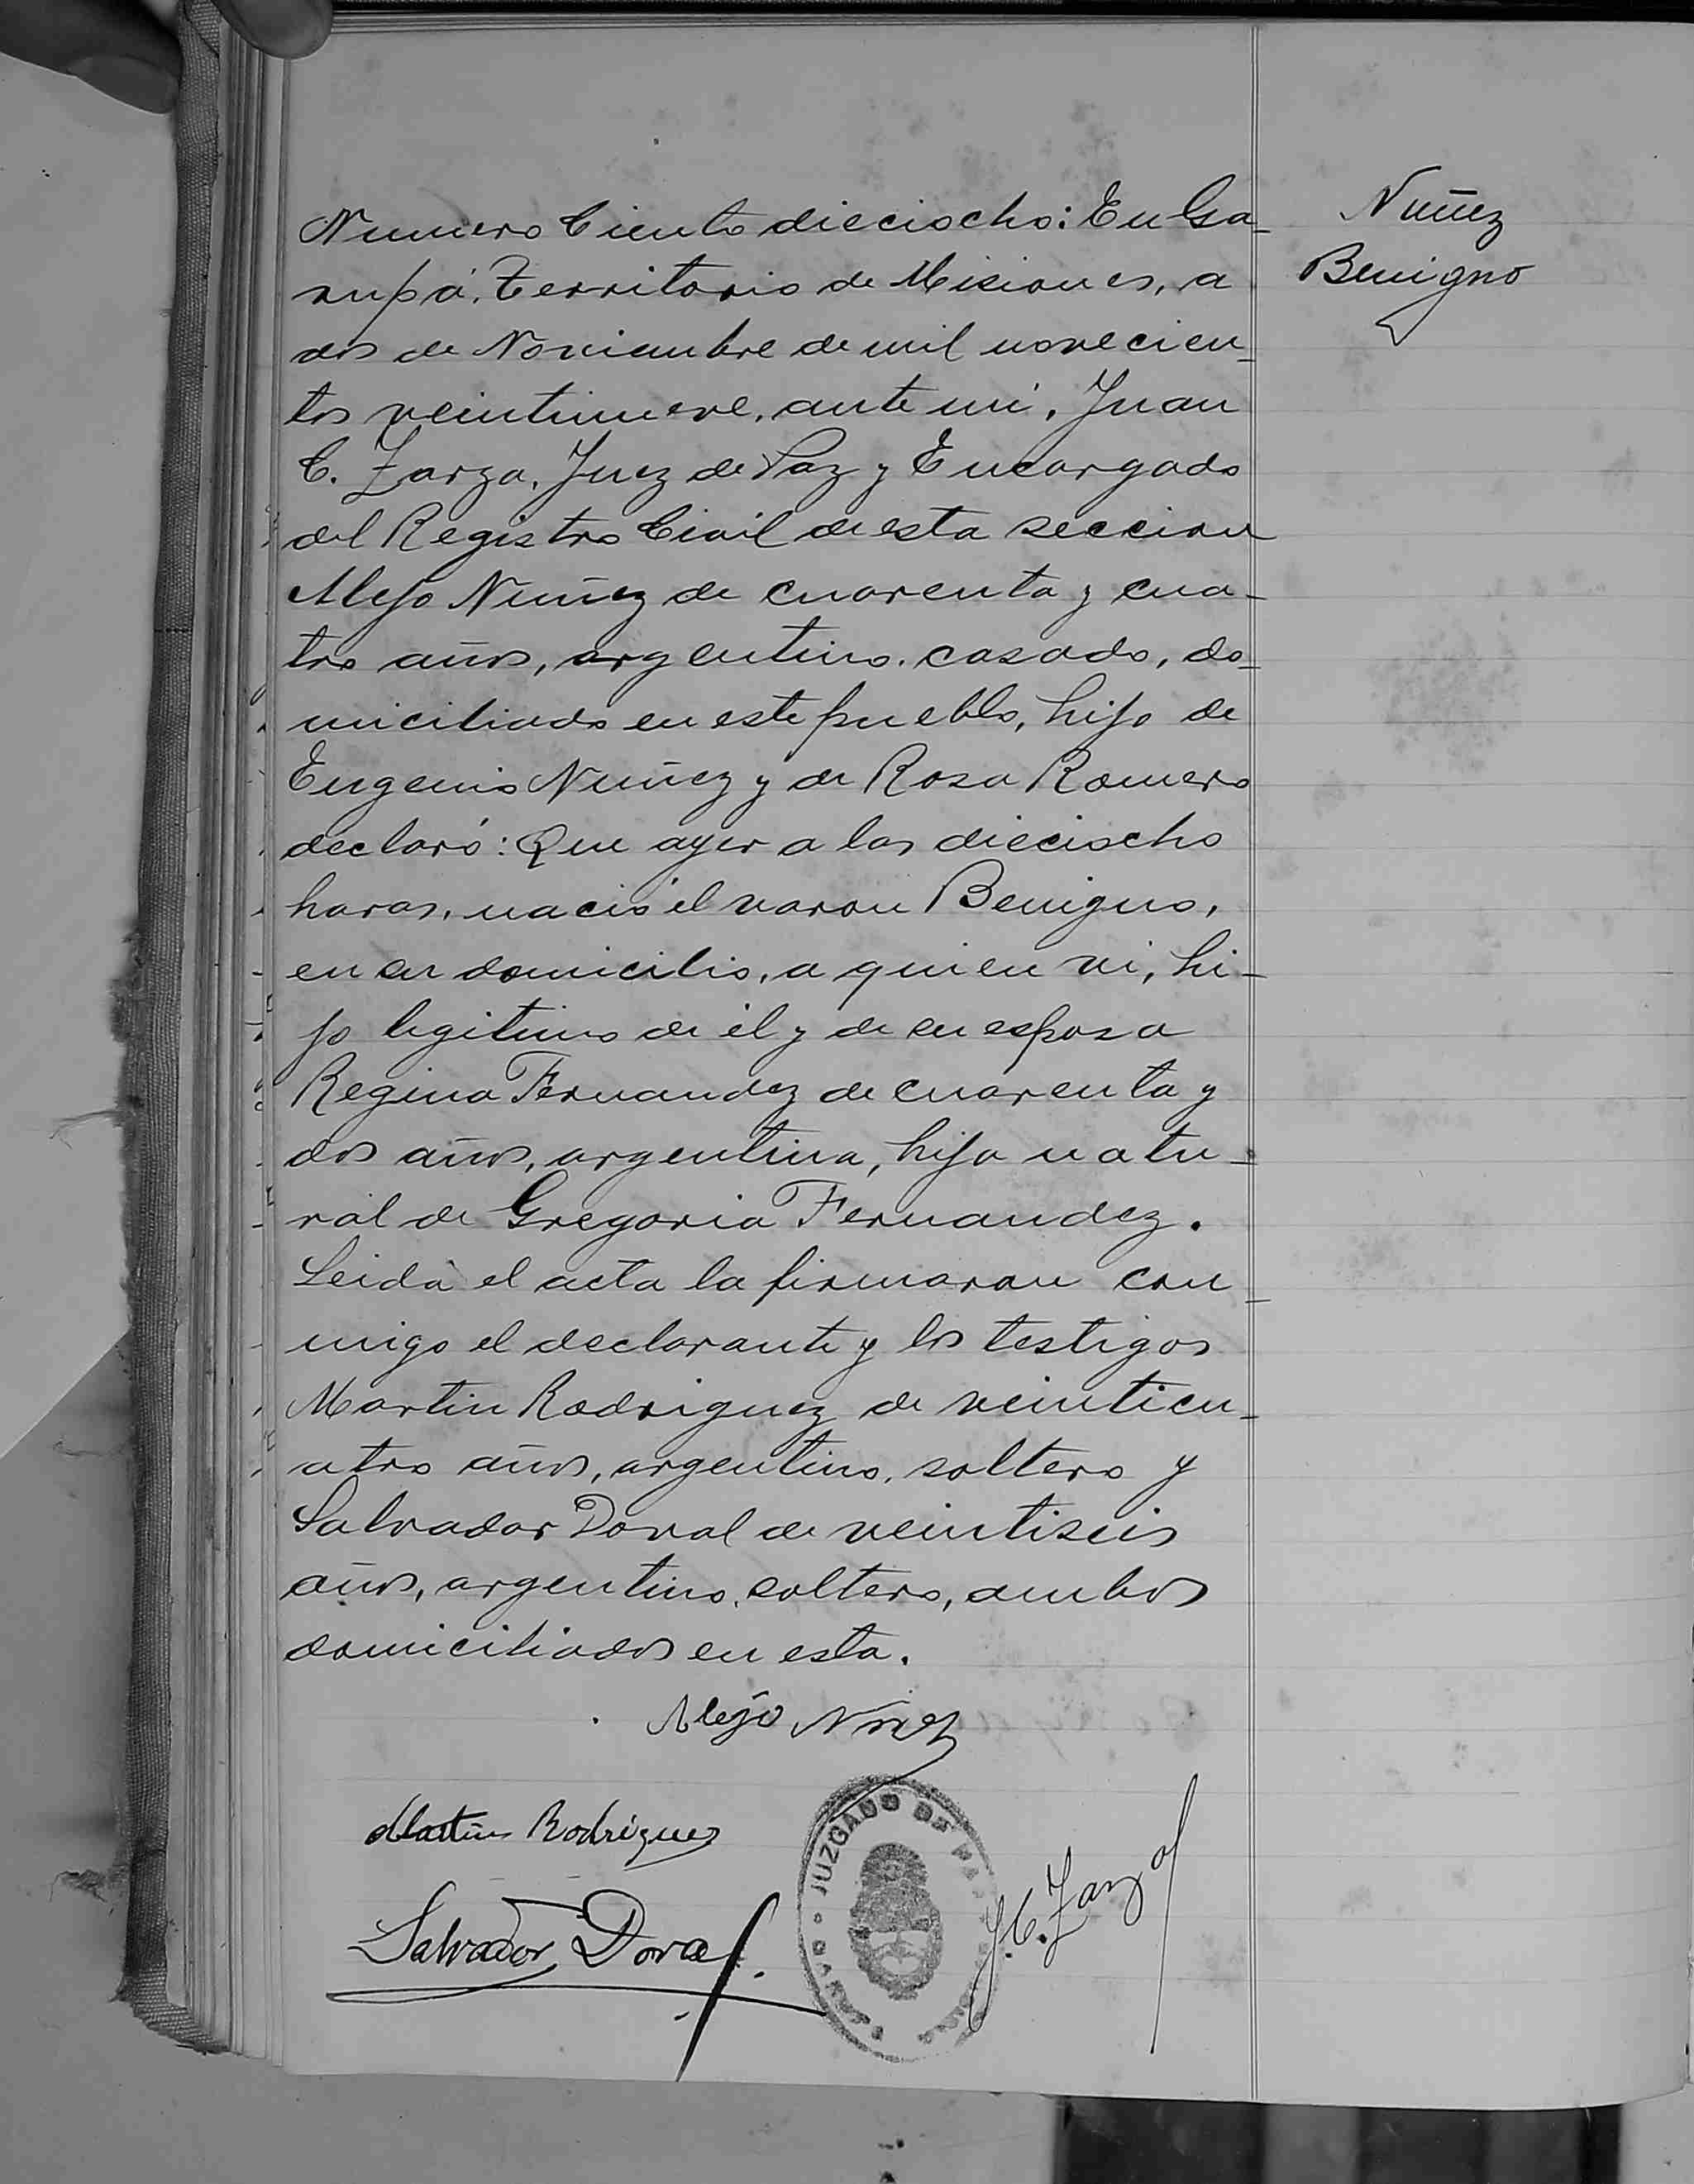 Nuñez
Benigno
Numero Ciento dieciocho: En Ga-
rupá, Territorio de Misiones, a
dos de Noviembre de mil novecien-
tos veintinueve, ante mi, Juan
C. Zarza, Juez de Paz y Encargado
del Registro Civil de esta seccion
Alejo Nuñez de cuarenta y cua-
tro años, argentino, casado, do-
miciliado en este pueblo, hijo de
Eugenio Nuñez y de Rosa Romero
declaró: Que ayer a las dieciocho
horas, nació el varon Benigno,
en su domicilio, a quien vi, hi-
jo legitimo de él y de su esposa
Regina Fernandez de cuarenta y
dos años, argentina, hija natu-
ral de Gregoria Fernandez.
Leida el acta la firmaron con-
migo el declarante y los testigos
Martin Rodriguez de veinticu-
atro años, argentino, soltero y
Salvador Doval de veintiseis
años, argentino, soltero, ambos
domiciliados en esta.
Alejo Nuñez
Martin Rodriguez
JUZGADO DE PAZ
Salvador Doval
J. C. Zarza